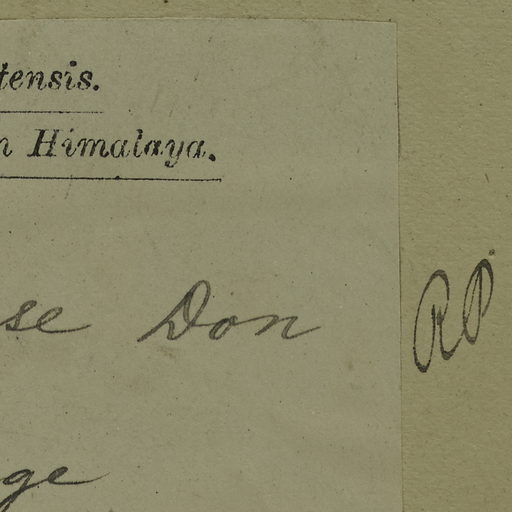 tensis.
n Himalaya.
se Don
RP
ge